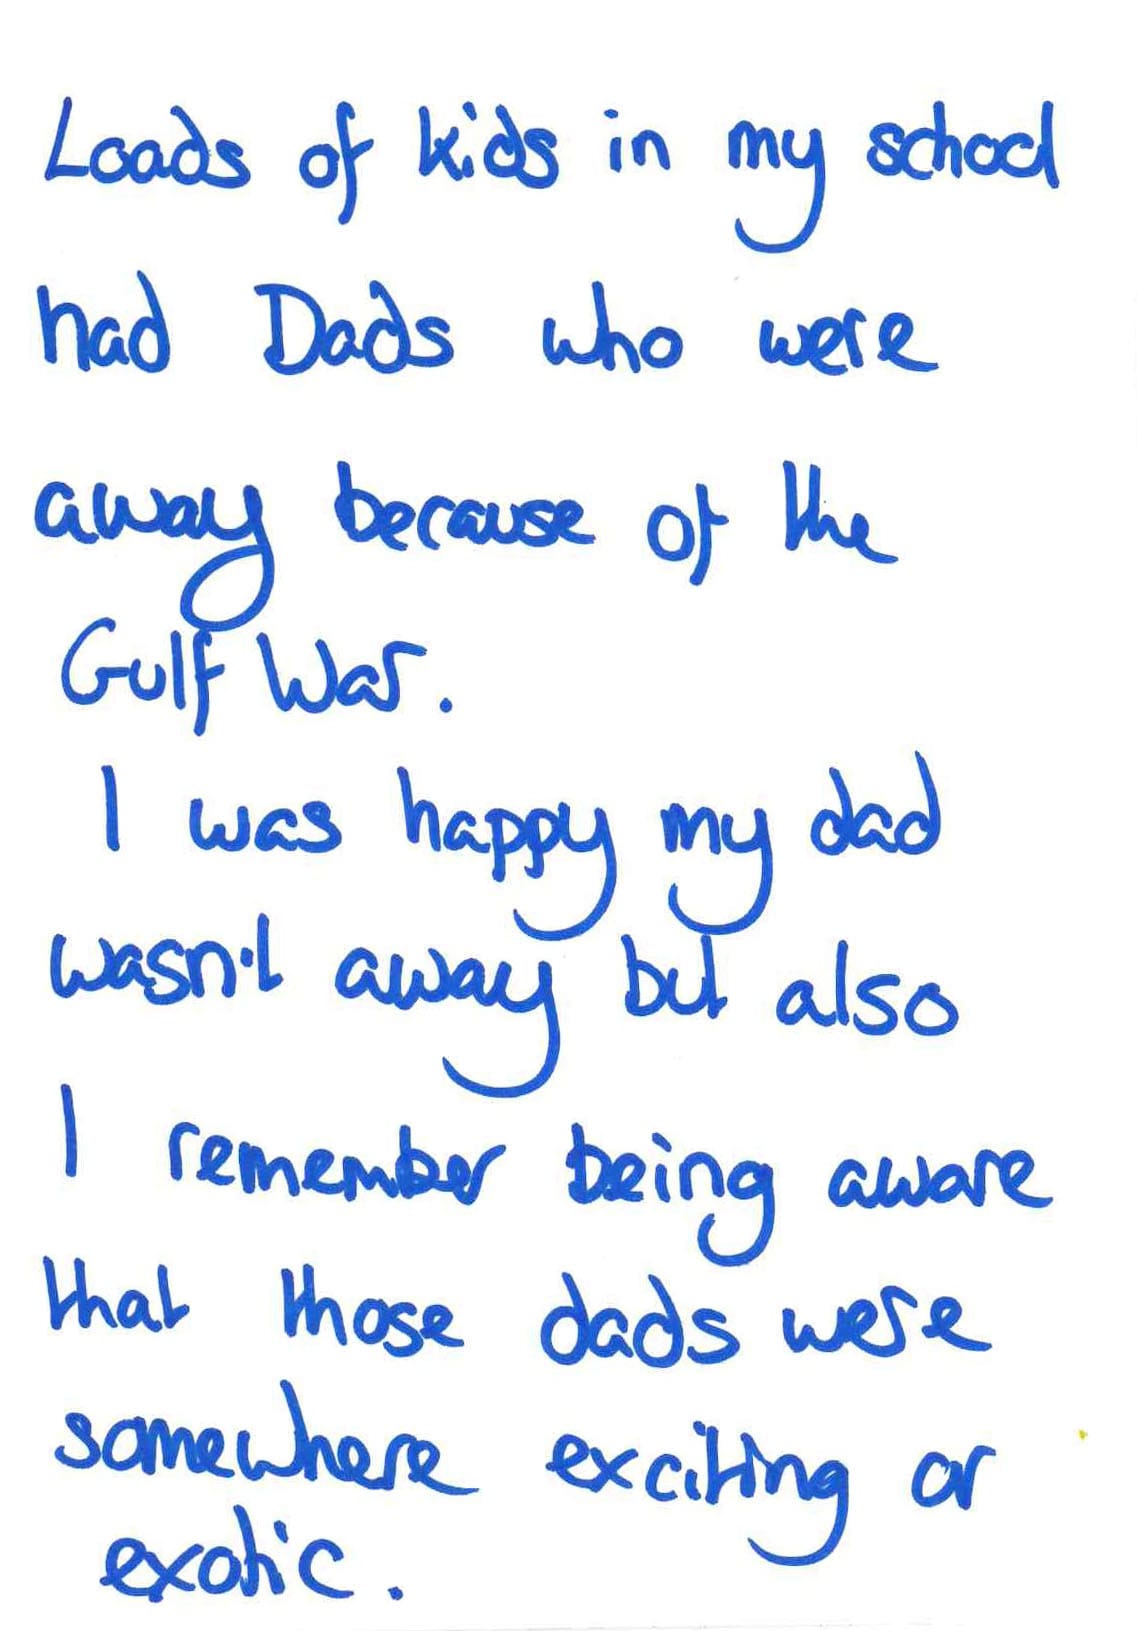 Loads of kids in my school
had Dads who were
away because of the
Gulf War.
I was happy my dad
wasn't away but also
I remember being aware
that those dads were
somewhere exciting or
exotic.